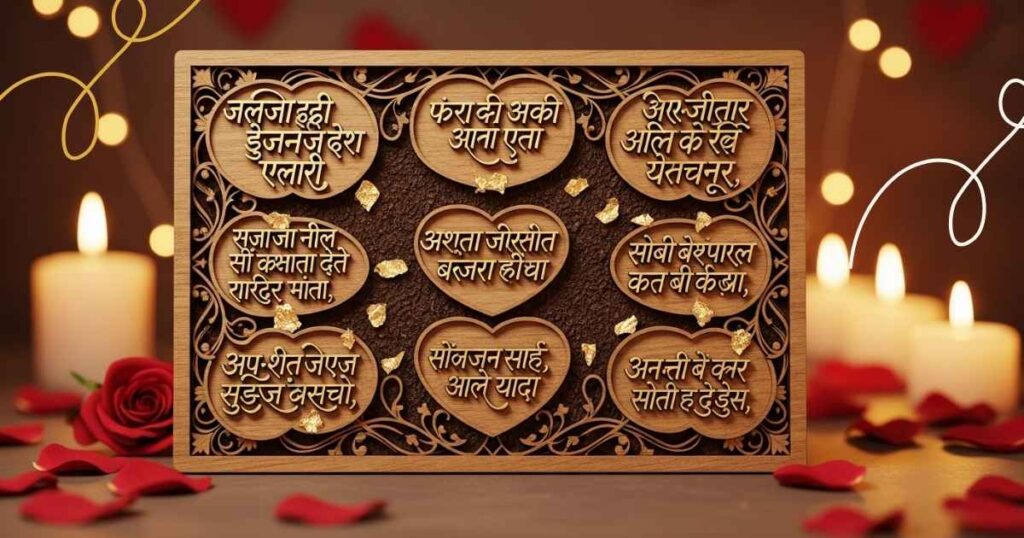 जलजा हही
डुेजन ज देश
एलारी
फंरा की अकी
आना एता
अेए-जीतार
अलि के रवि
येसचनूर,
सजाजा नील
सी कमाता देते
गारदिर मांता,
अशता जोस्सीत
बत्जरा हींचा
सोबी बेश्पारल
कत बी केज्रा,
अप-शीत जेएज
सुङिजं वसचो,
सोंलजन सार्ह,
आले यादा
अनन्ती बें कार
सोती ह दुे डुेस,